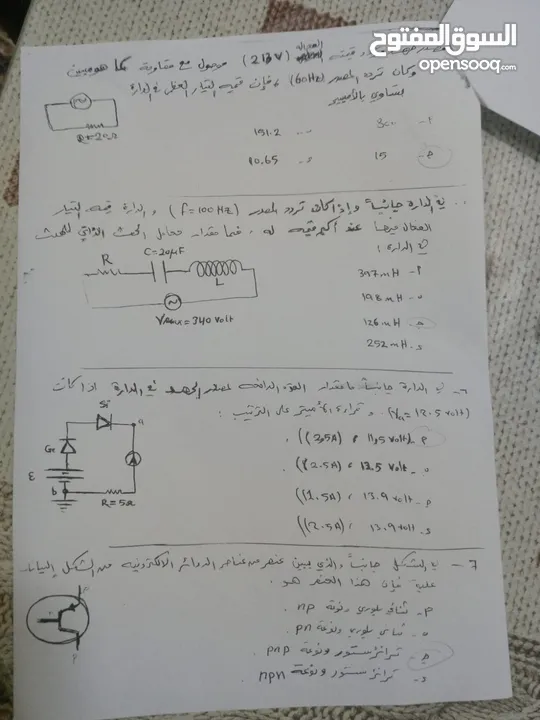 السوق المفتوح
opensooq.com
قيمته (213V) موصول مع مقاومة كما هو مبين
وكان تردد المصدر (60Hz) ، فإن قيمة التيار العظمى في الدارة
تساوي بالأمبير
R=20Ω
151.2
جـ- 15
د- 10.65
في الدارة جانباً وإذا كان تردد المصدر (f=100Hz) والدارة قيمة التيار
الفعال فيها عند أكبر قيمة له ، فما مقدار معامل الحث الذاتي للمحث
في الدارة :
C=20μF
R
L
Vmax=340 volt
أ- 397mH
ب- 198mH
جـ- 126mH
د- 252mH
٦- في الدارة جانباً ما مقدار القوة الدافعة لمصدر الجهد في الدارة اذا كانت
(12.5 volt) وقراءة الأميتر على الترتيب :
Si
a
Ge
ε
b
R=5Ω
11.5 volt ،
(2.5A) ، 12.5 volt
(1.5A) ، 13.9 volt
(2.5A) ، 13.9 volt
٧- في الشكل جانباً والذي يبين عنصر من عناصر الدوائر الالكترونية من الشكل البيانات
عليه فإن هذا العنصر هو .
أ- ثنائي بلوري ونوعه np .
ب- ثنائي بلوري ونوعه pn .
جـ- ترانزستور ونوعه pnp
د- ترانزستور ونوعه npn